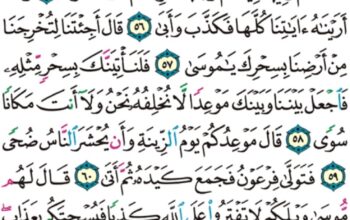 أَرَيْنَٰهُ ءَايَٰتِنَا كُلَّهَا فَكَذَّبَ وَأَبَىٰ ٥٦ قَالَ أَجِئْتَنَا لِتُخْرِجَنَا
مِنْ أَرْضِنَا بِسِحْرِكَ يَٰمُوسَىٰ ٥٧ فَلَنَأْتِيَنَّكَ بِسِحْرٍ مِّثْلِهِۦ
فَٱجْعَلْ بَيْنَنَا وَبَيْنَكَ مَوْعِدًا لَّا نُخْلِفُهُۥ نَحْنُ وَلَآ أَنتَ مَكَانًا
سُوًى ٥٨ قَالَ مَوْعِدُكُمْ يَوْمُ ٱلزِّينَةِ وَأَن يُحْشَرَ ٱلنَّاسُ ضُحًى
٥٩ فَتَوَلَّىٰ فِرْعَوْنُ فَجَمَعَ كَيْدَهُۥ ثُمَّ أَتَىٰ ٦٠ قَالَ لَهُم
مُّوسَىٰ وَيْلَكُمْ لَا تَفْتَرُوا۟ عَلَى ٱللَّهِ كَذِبًا فَيُسْحِتَكُم بِعَذَابٍ